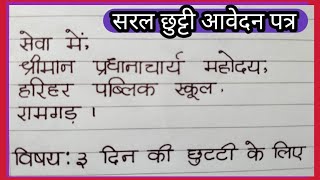 सरल छुट्टी आवेदन पत्र
सेवा में,
श्रीमान प्रधानाचार्य महोदय,
हरिहर पब्लिक स्कूल
रामगढ़ ।
विषय: ३ दिन की छुटटी के लिए